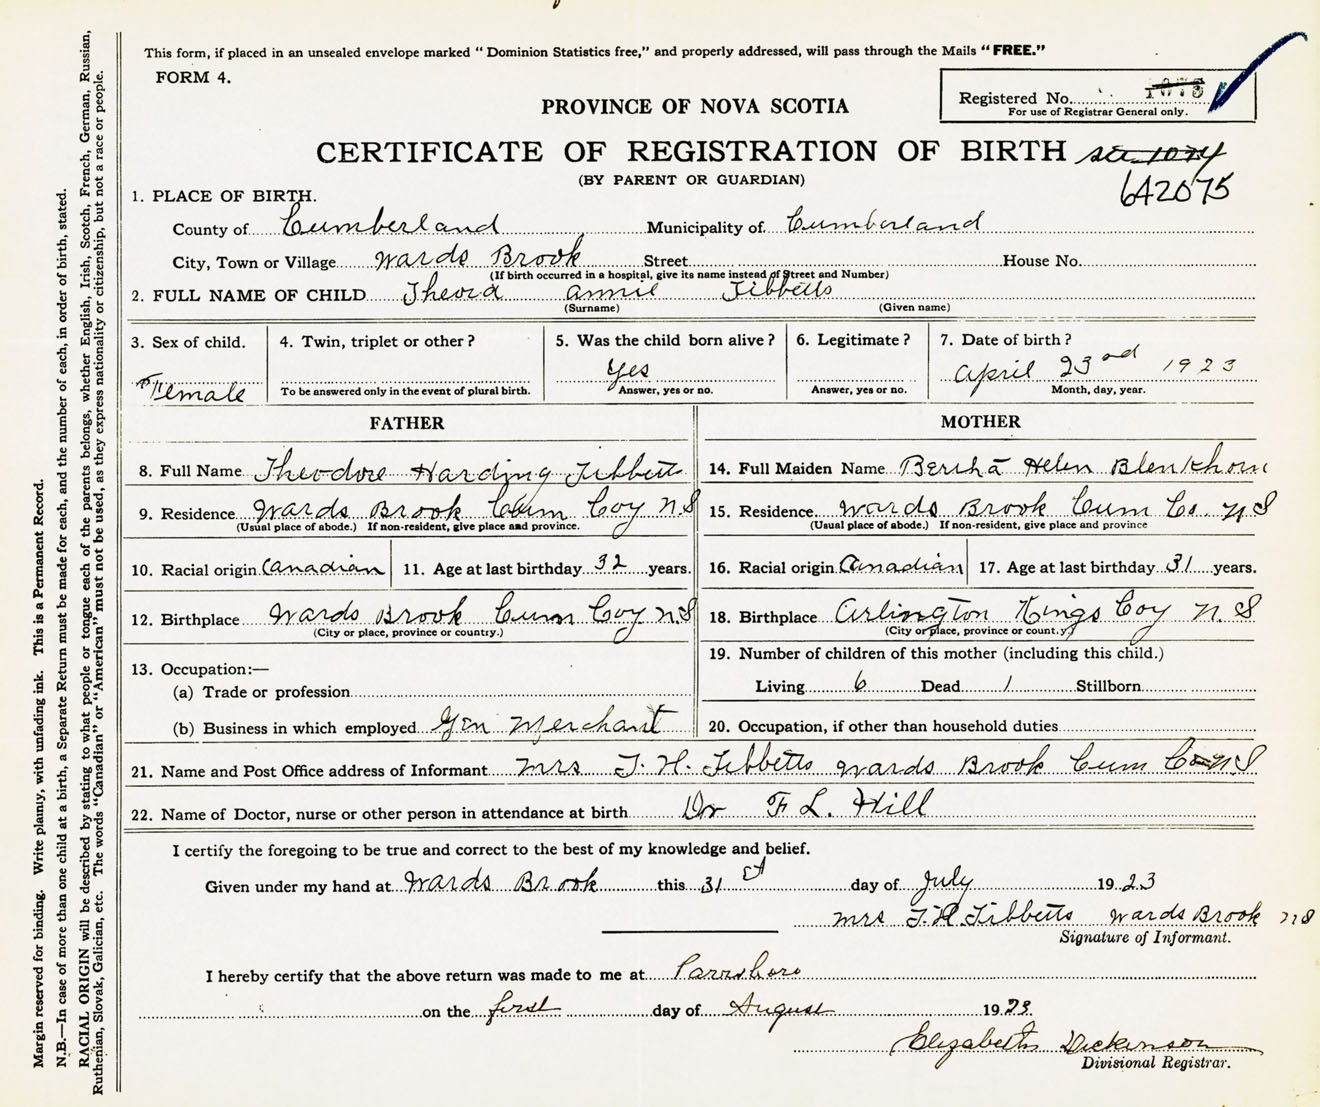 This form, if placed in an unsealed envelope marked “ Dominion Statistics free,” and properly addressed, will pass through the Mails “ FREE.”
FORM 4.
Registered No. 1075
For use of Registrar General only.
PROVINCE OF NOVA SCOTIA
CERTIFICATE OF REGISTRATION OF BIRTH
(BY PARENT OR GUARDIAN)
642075
1. PLACE OF BIRTH.
County of Cumberland Municipality of Cumberland
City, Town or Village Wards Brook Street House No.
(If birth occurred in a hospital, give its name instead of Street and Number)
2. FULL NAME OF CHILD Annie Tibbetts
(Surname) (Given name)
3. Sex of child. 4. Twin, triplet or other ? 5. Was the child born alive ? 6. Legitimate ? 7. Date of birth ?
Female Yes April 23rd 1923
To be answered only in the event of plural birth. Answer, yes or no. Answer, yes or no. Month, day, year.
FATHER MOTHER
8. Full Name Theodore Harding Tibbett 14. Full Maiden Name Bertha Helen Blenkhorn
9. Residence Wards Brook Cum Coy N.S 15. Residence. Wards Brook Cum Co. N S
(Usual place of abode.) If non-resident, give place and province. (Usual place of abode.) If non-resident, give place and province
10. Racial origin Canadian 11. Age at last birthday 32 years. 16. Racial origin Canadian 17. Age at last birthday 31 years.
12. Birthplace Wards Brook Cum Coy N.S 18. Birthplace Arlington Kings Coy N. S
(City or place, province or country.) (City or place, province or count.y)
13. Occupation:— 19. Number of children of this mother (including this child.)
(a) Trade or profession Living 6 Dead 1 Stillborn
(b) Business in which employed Gen Merchant 20. Occupation, if other than household duties
21. Name and Post Office address of Informant Mrs T. H. Tibbetts Wards Brook Cum Co N S
22. Name of Doctor, nurse or other person in attendance at birth Dr F L. Hill
I certify the foregoing to be true and correct to the best of my knowledge and belief.
Given under my hand at Wards Brook this 31st day of July 1923
Mrs T.H. Tibbetts Wards Brook N S
Signature of Informant.
I hereby certify that the above return was made to me at Parrsboro
on the first day of August 1923.
Elizabeth Dickinson
Divisional Registrar.
Margin reserved for binding. Write plainly, with unfading ink. This is a Permanent Record.
N.B.—In case of more than one child at a birth, a Separate Return must be made for each, and the number of each, in order of birth, stated.
RACIAL ORIGIN will be described by stating to what people or tongue each of the parents belongs, whether English, Irish, Scotch, French, German, Russian,
Ruthenian, Slovak, Galician, etc. The words “Canadian” or “American” must not be used, as they express nationality or citizenship, but not a race or people.